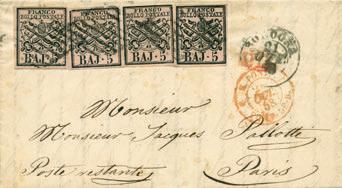 FRANCO FRANCO FRANCO FRANCO
BOLLO POSTALE BOLLO POSTALE BOLLO POSTALE BOLLO POSTALE
BAJ·5 BAJ·5 BAJ·5 BAJ·5
Monsieur
Monsieur Jacques Pallotte
Poste restante Paris